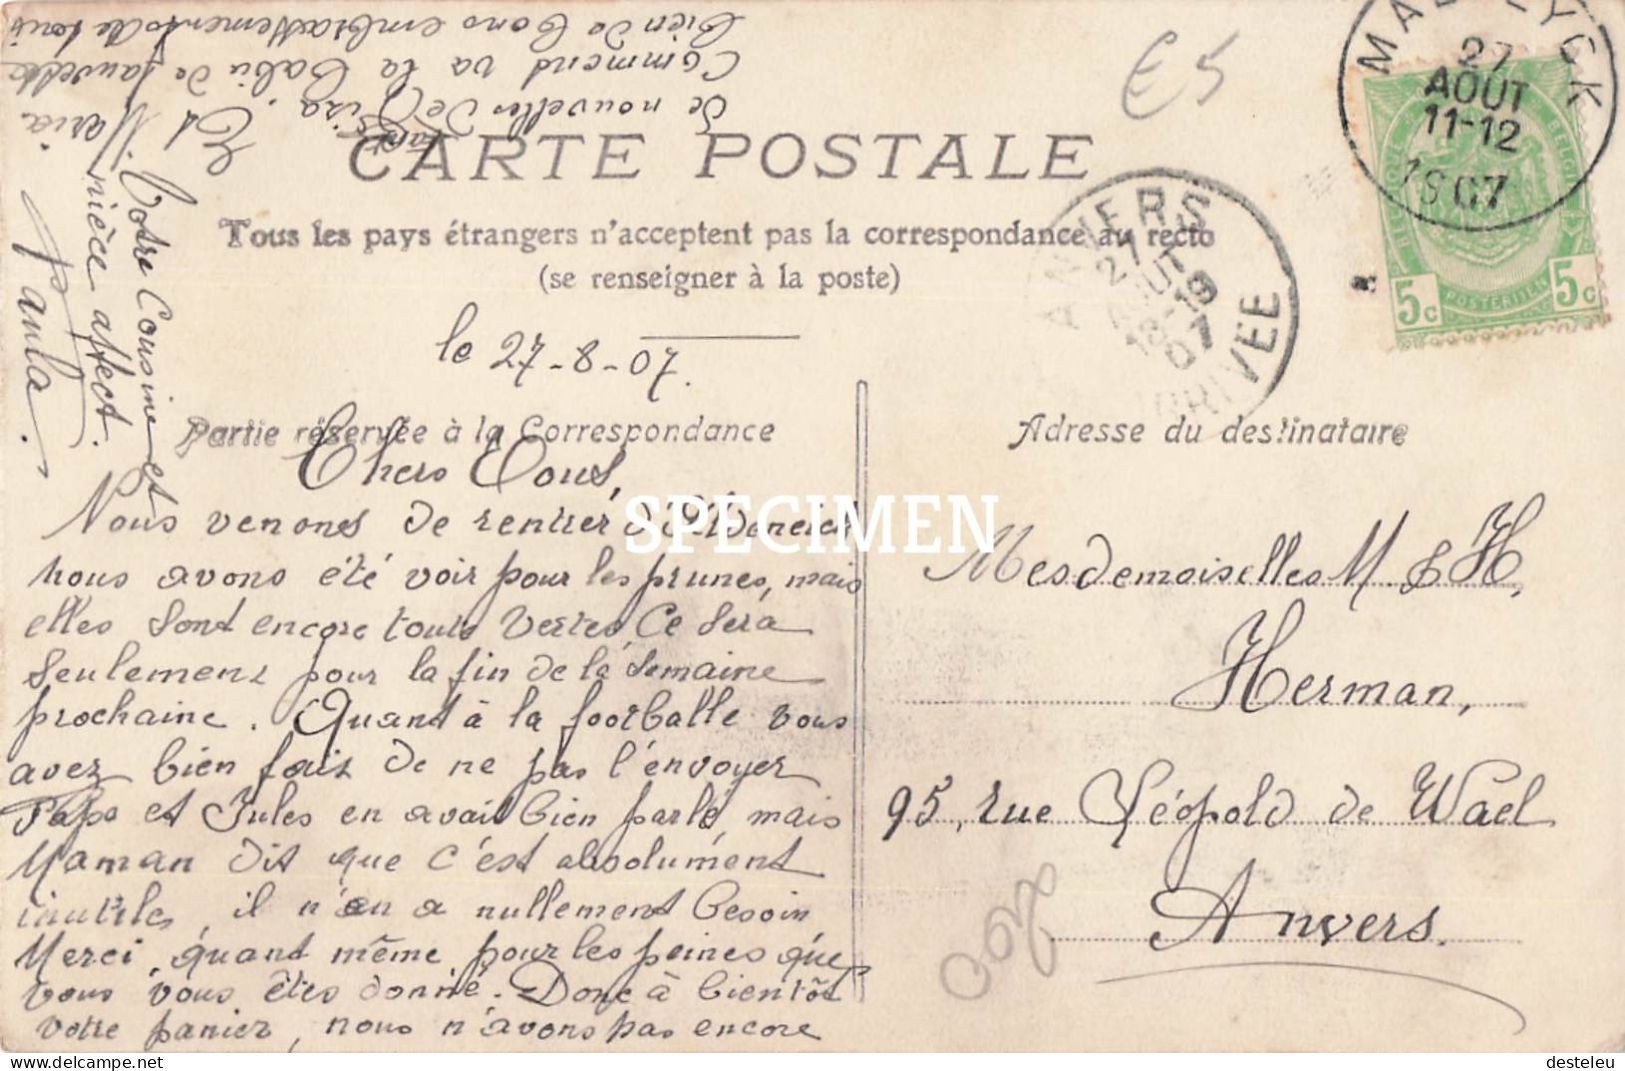 CARTE POSTALE
Tous les pays étrangers n'acceptent pas la correspondance au recto
(se renseigner à la poste)
le 27-8-07.
Partie réservée à la Correspondance
Chers Tous,
Nous venons de rentrer d'
nous avons été voir pour les prunes, mais
elles sont encore toute vertes. Ce sera
seulement pour la fin de la semaine
prochaine. Quant à la footballe vous
avez bien fait de ne pas l'envoyer
Papa et Jules en avait bien parlé, mais
Maman dit que c'est absolument
inutile, il n'en a nullement besoin
Merci quant même pour les peines que
vous vous êtes donné. Donc à bientôt
votre panier, nous n'avons pas encore
de nouvelles de
Commend va la
bien de bons embrassements de tous
Votre Cousine et
nièce affect.
Paula.
Et Maria
Adresse du destinataire
Mesdemoiselles M & H,
Herman,
95, rue Léopold de Wael
Anvers.
MAESEYCK
27
AOUT
11-12
1907
ANVERS
27
AOUT
18-19
07
ARRIVEE
5c
POSTERIJEN
5c
€5
SPECIMEN
desteleu